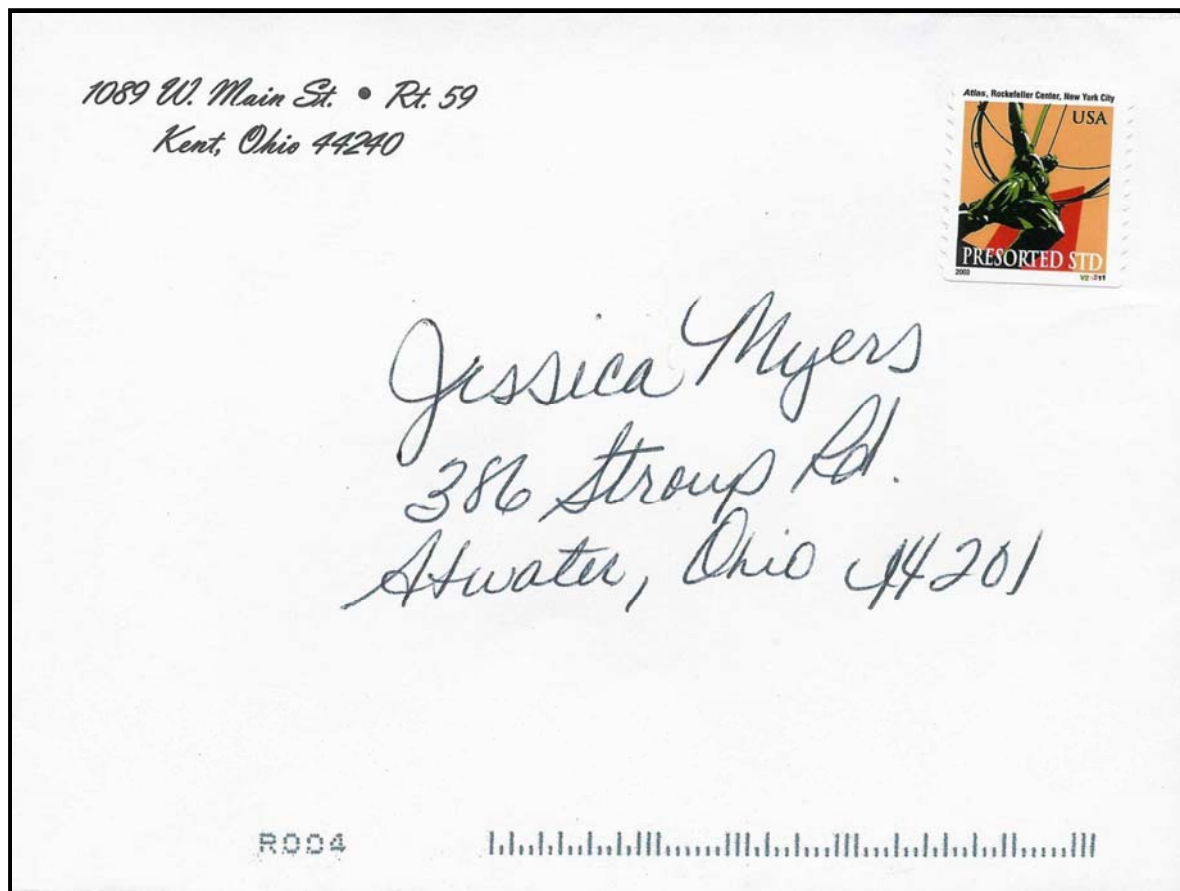 1089 W. Main St. • Rt. 59
Kent, Ohio 44240
Atlas, Rockefeller Center, New York City
USA
PRESORTED STD
2003
Jessica Myers
386 Stroup Rd.
Atwater, Ohio 44201
R004